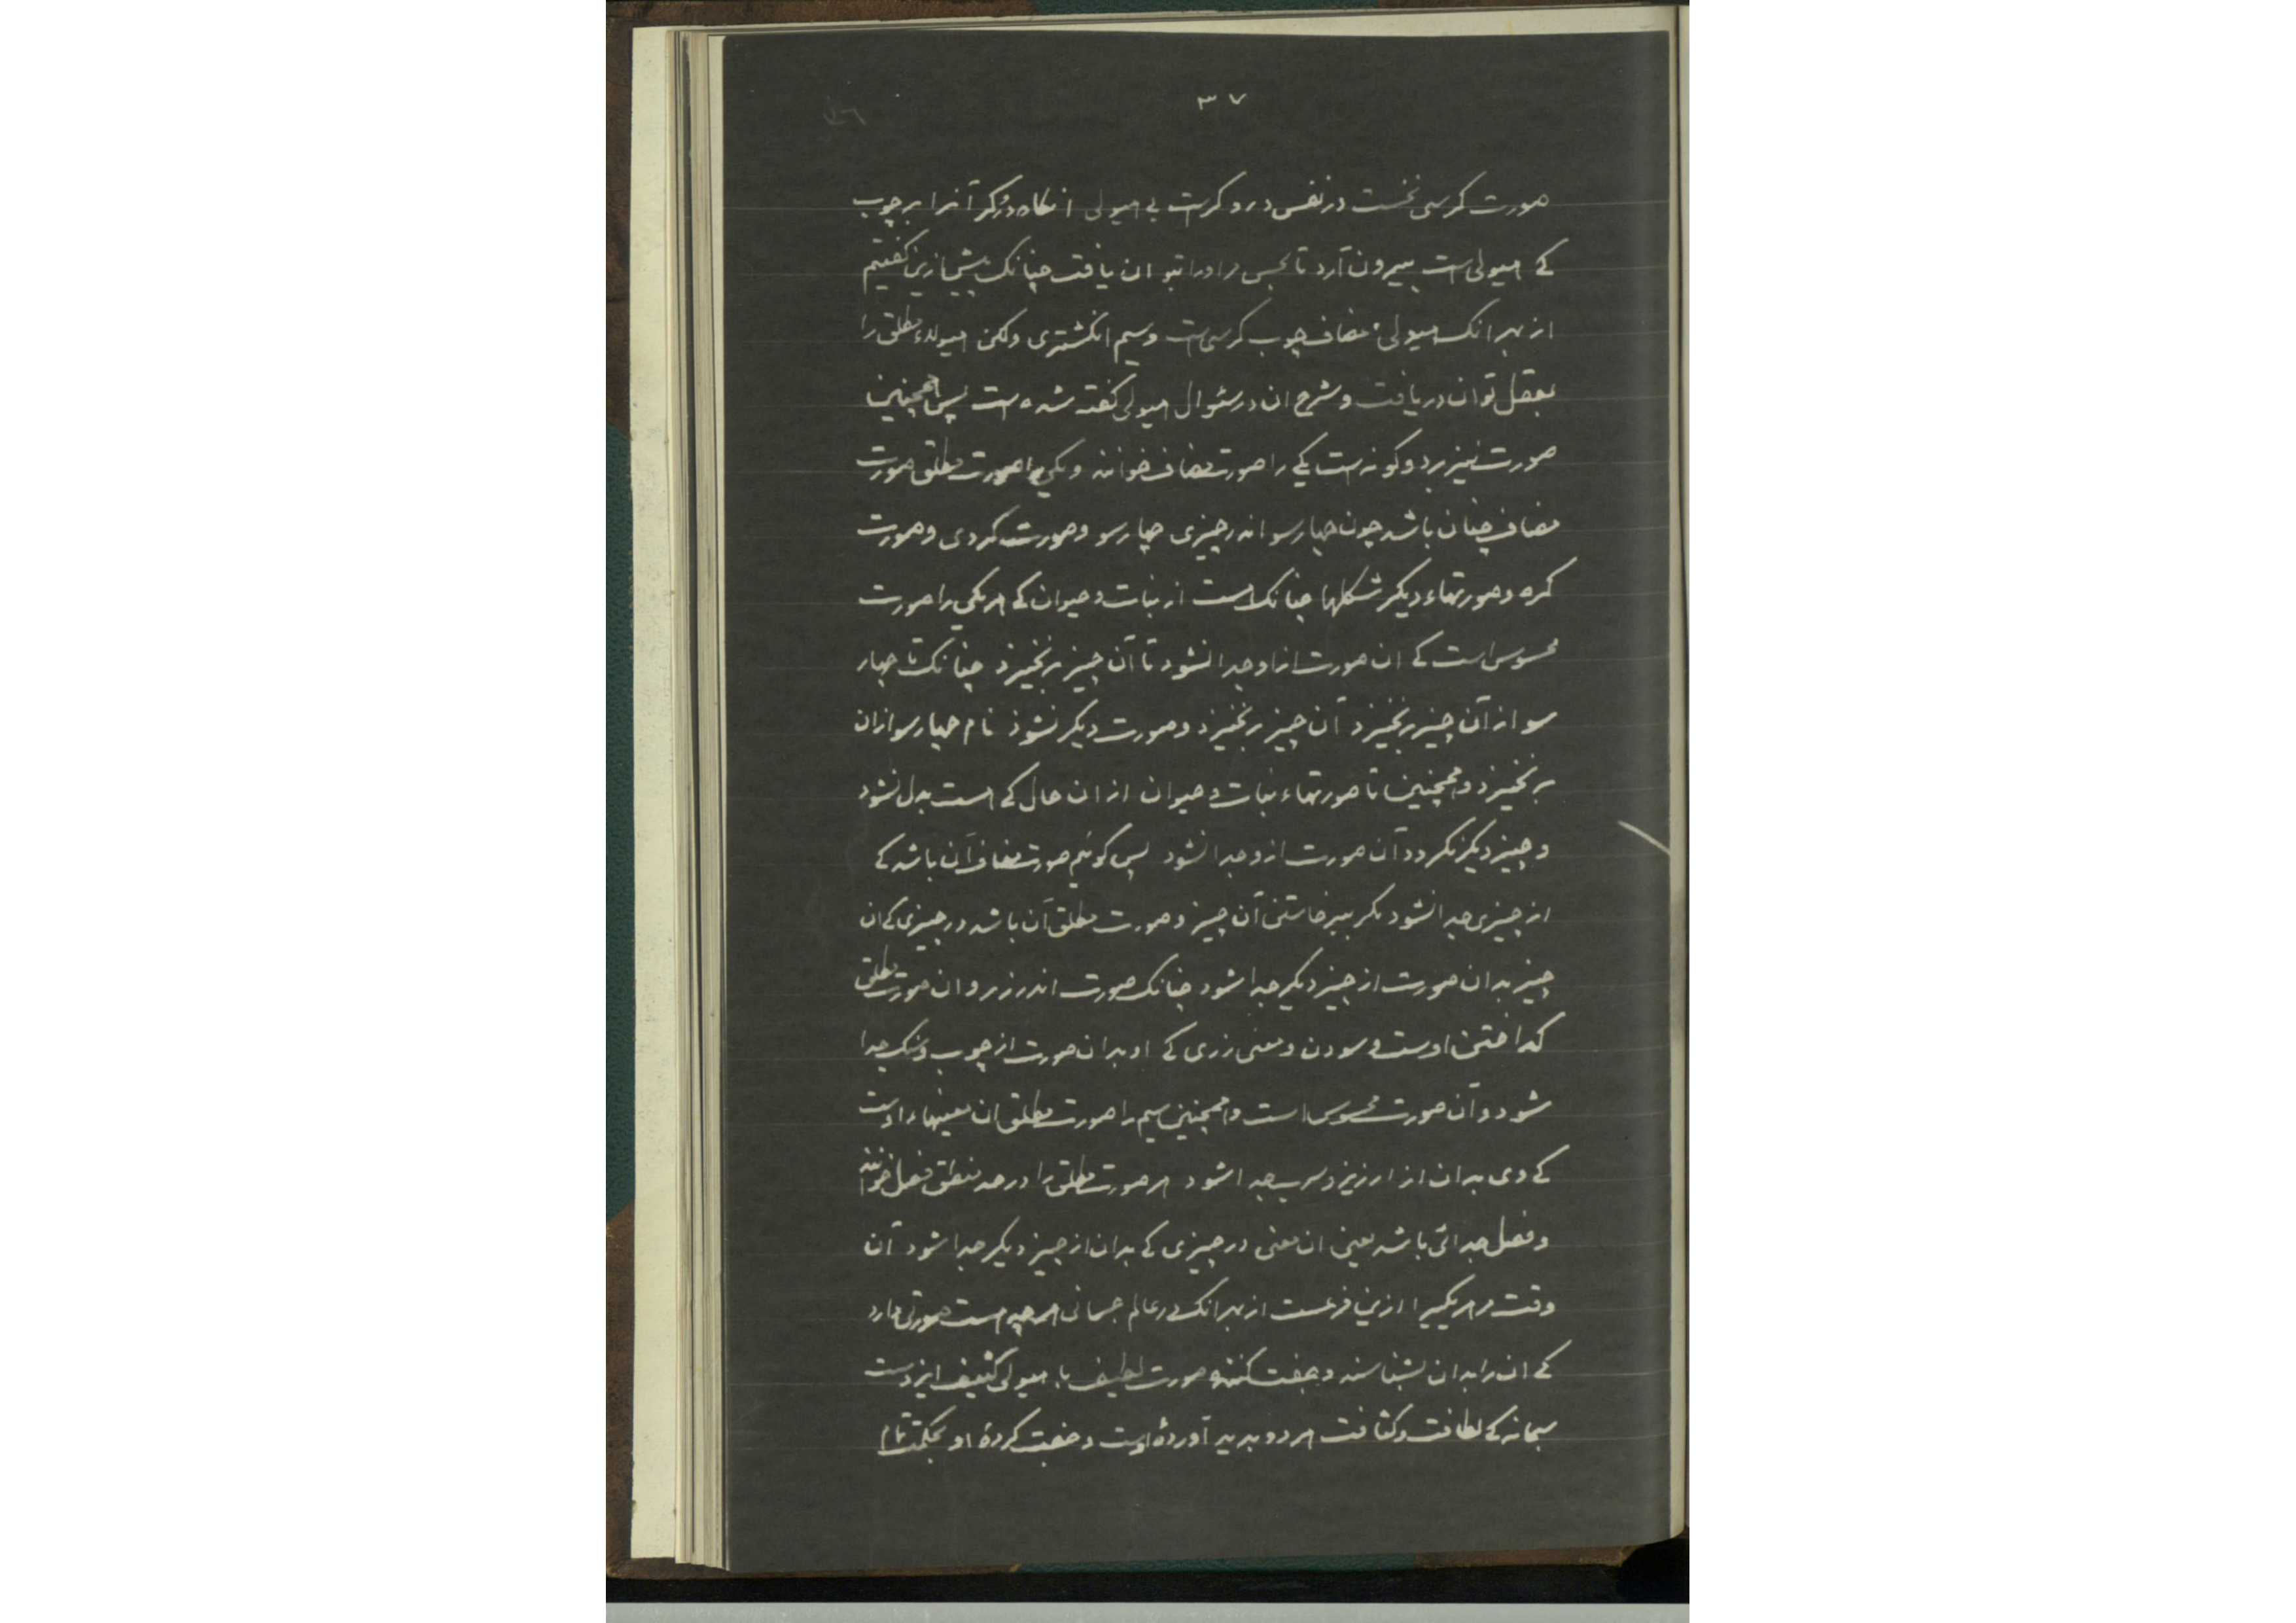 ۳۷
صورت کرسی نخست در نفس درودکرست بی هیولی انکاه درودکر آنرا بر چوب
کے هیولی است بیرون آرد تا بحس مر اورا بتوان یافت چنانک پیش ازین کفتیم
از بهر انک هیولیٔ مضاف چوب کرسی است و سیم انکشتری ولکن هیولاء مطلق را
بعقل توان دریافت و شرح ان در سئوال هیولی کفته شده است پس همچنین
صورت نیز بر دو کونه است یکی را صورت مضاف خوانند و یکی را صورت مطلق صورت
مضاف چنان باشد چون چهارسو اندر چیزی چهارسو و صورت کردی و صورت
کره و صورتهاء دیکر شکلها چنانک است از نبات و حیوان کے هر یکی را صورت
محسوس است کے ان صورت ازاو جدا نشود تا آن چیز برنخیزد چنانک تا چهار
سو از آن چیز برنخیزد آن چیز برنخیزد و صورت دیکر نشوذ نام چهارسو ازان
برنخیزد و همچنین تا صورتهاء نبات و حیوان از ان حال کے هست بدل نشود
و چیز دیکر نکردد آن صورت ازو جدا نشود پس کوئیم صورت مضاف آن باشد کے
از چیزی جدا نشود مکر ببرخاستن آن چیز و صورت مطلق آن باشد در چیزی کے ان
چیز بدان صورت از چیز دیکر جدا شود چنانک صورت اندر زر و ان صورت مطلق
کداختن اوست و سودن و معنی زری کے او بدان صورت از چوب و سنک جدا
شود و آن صورت محسوس است و همچنین سیم را صورت مطلق ان معنیهاء اوست
کے وی بدان از ارزیز و سرب جدا شود هر صورت مطلق را در حد منطق فصل خوانند
و فصل جدائی باشد یعنی ان معنی در چیزی کے بدان از چیز دیکر جدا شود آن
وقت مر هر یکیرا ازین فرعست از بهر انک در عالم جسمانی هر چه هست صورتی دارد
کے ان را بدان بشناسند و جفت کننده صورت لطیف با هیولی کثیف ایزدست
سبحانه کے لطافت و کثافت هر دو بدید آوردهٔ اوست و جفت کردهٔ او بحکمت تمام